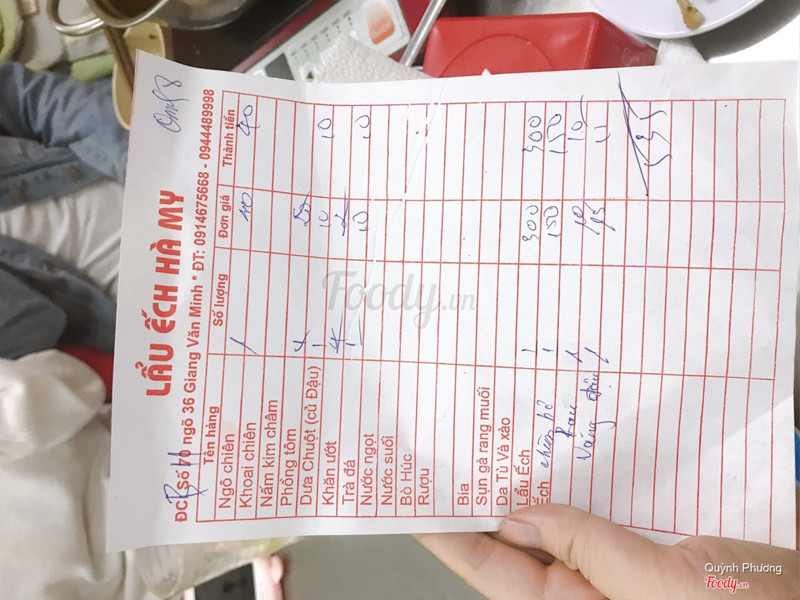 Quý 8
LẨU ẾCH HÀ MY
ĐC: Số 10 ngõ 36 Giang Văn Minh * ĐT: 0914675668 - 0944489998
Tên hàng Số lượng Đơn giá Thành tiền
Ngô chiên
Khoai chiên 1 40 40
Nấm kim châm
Phồng tôm
Dưa Chuột (củ Đậu) 1 10 10
Khăn ướt
Trà đá 1 10 10
Nước ngọt
Nước suối
Bò Húc
Rượu
Bia
Sụn gà rang muối
Dạ Tủ Và xào
Lẩu Ếch 1 300 300
Ếch chiên bơ 1 150 150
Rau 1 10 10
Váng đậu 1 15 15
535
Foody.vn
Quỳnh Phương
Foody.vn